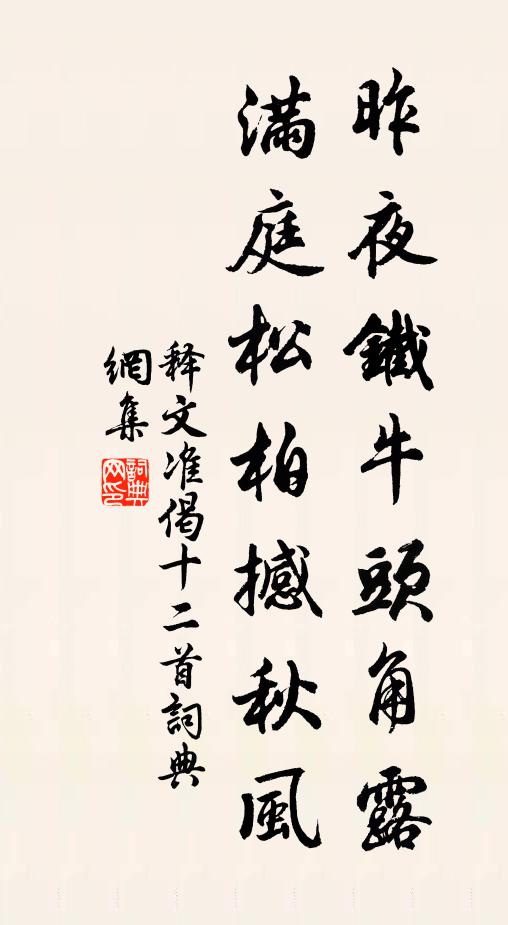 昨夜鐵牛頭角露
滿庭松柏撼秋風
释文准偈十二首詞典
網集
詞典
网印